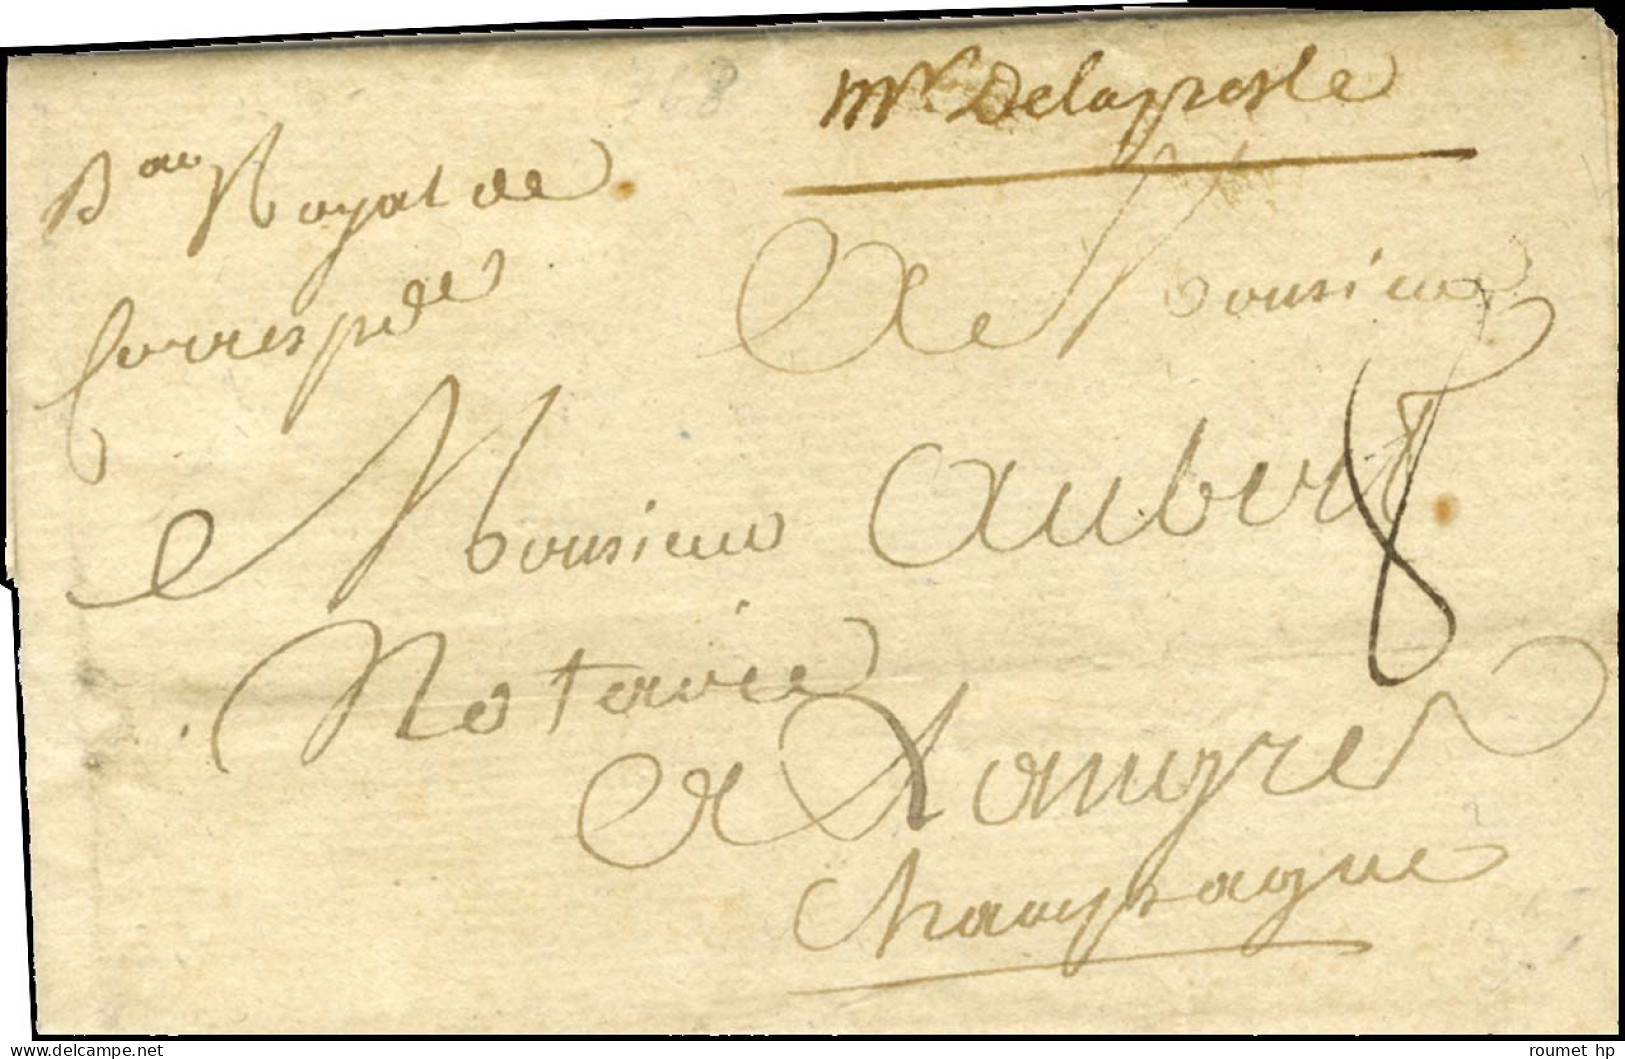 768
Mr. Delaporte
Bau Royal de
Correspde
A Monsieur
Monsieur Aubert
8
Notaire
A Langres
Champagne
delcampe.net
roumet_hp